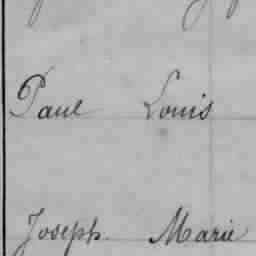 Paul Louis
Joseph. Marie